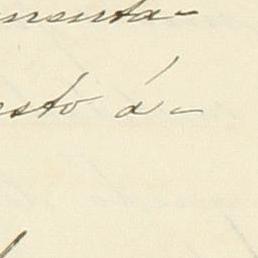 menta-
esto á-